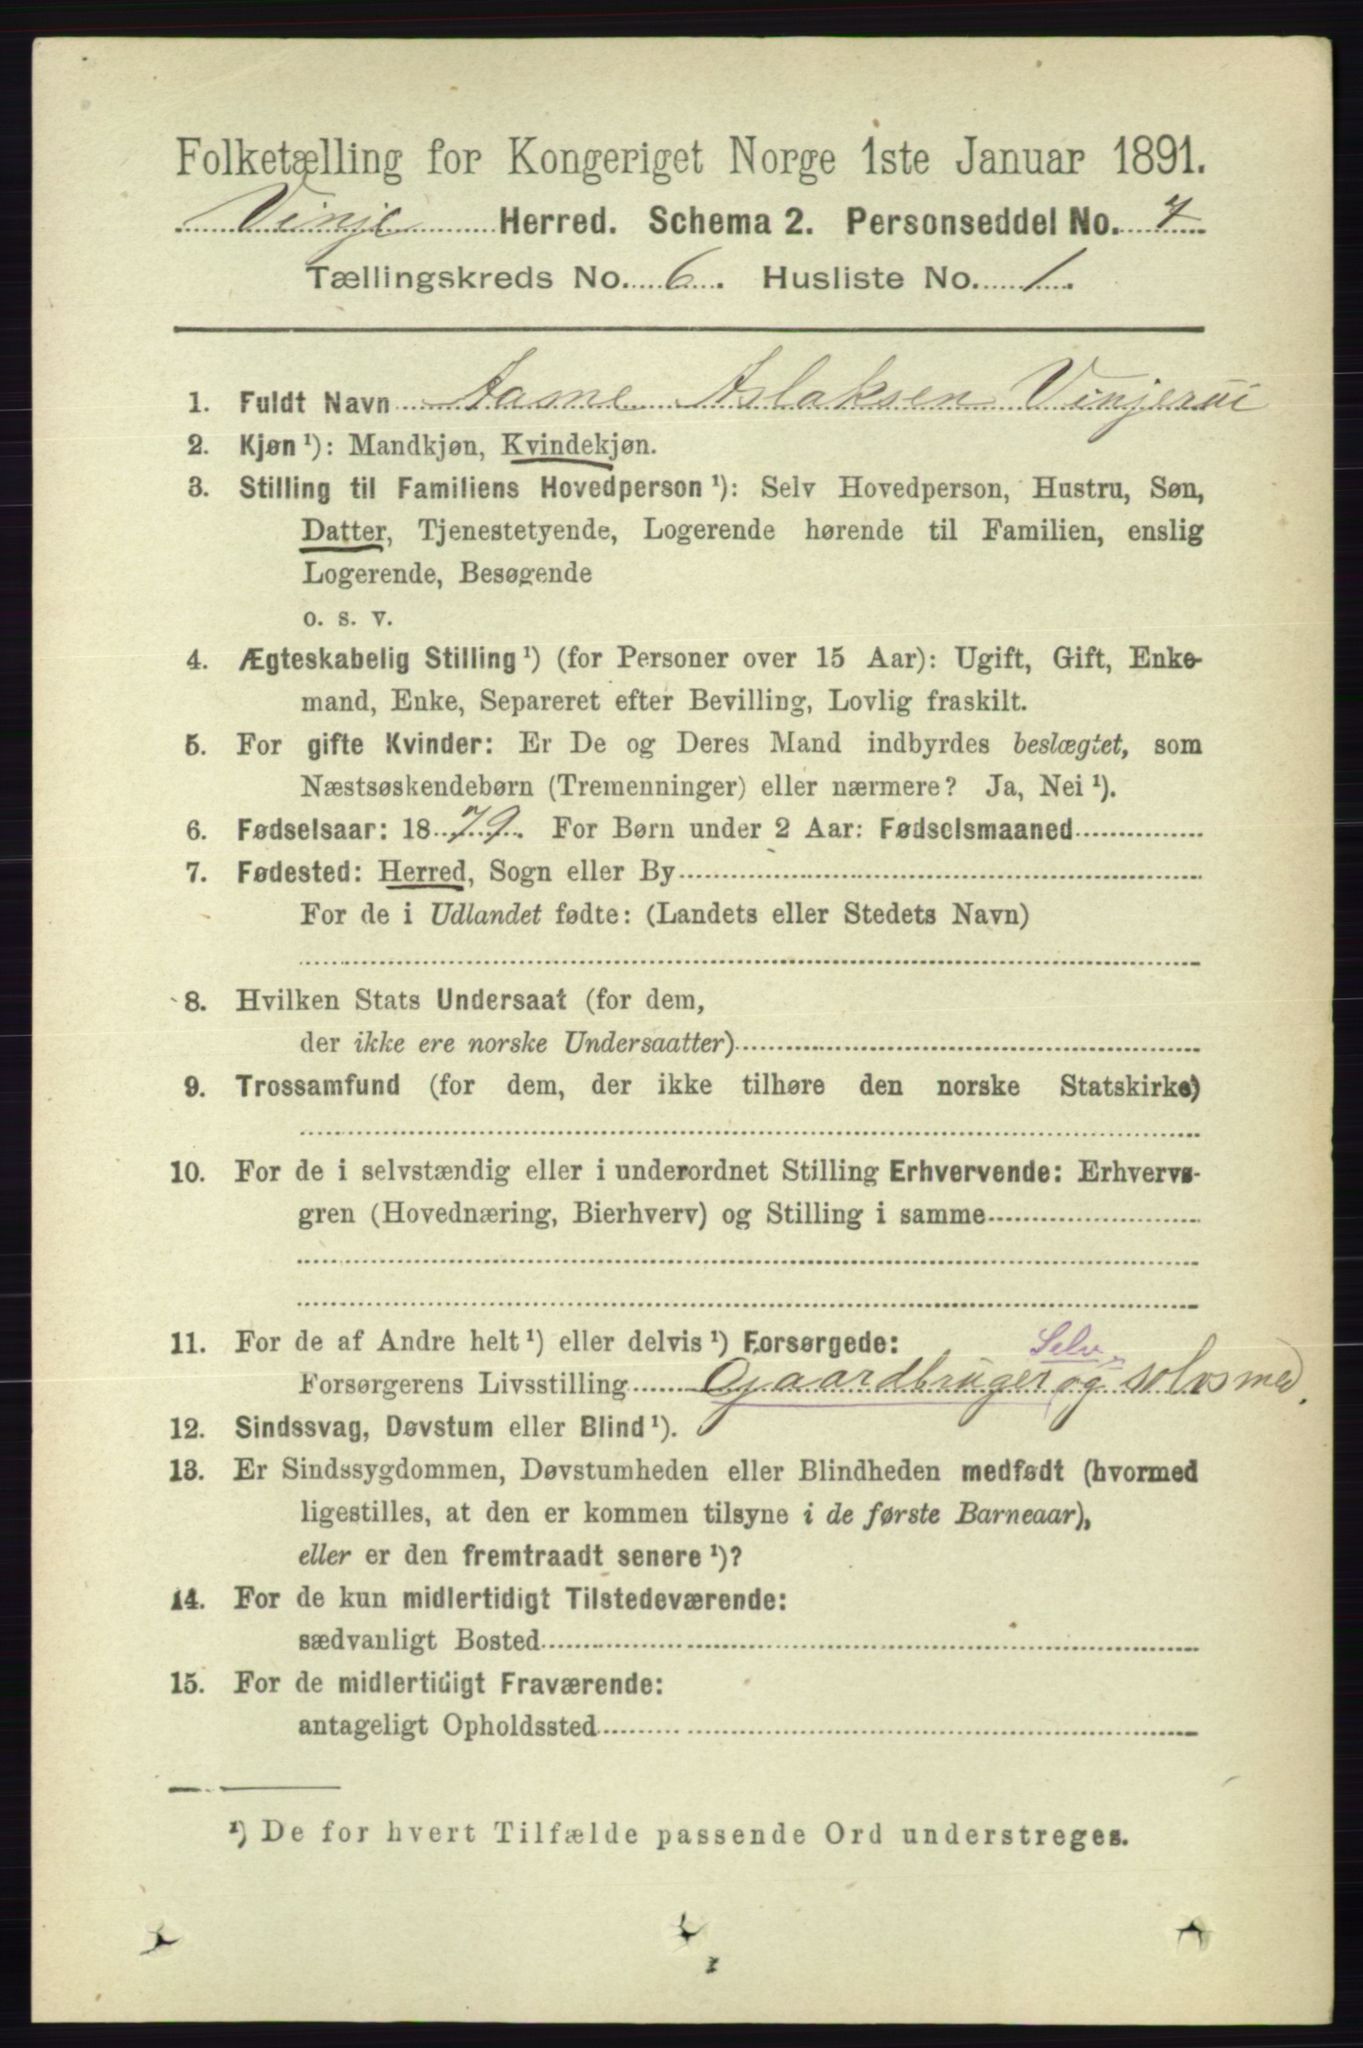 Folketælling for Kongeriget Norge 1ste Januar 1891.
Vinje Herred. Schema 2. Personseddel No. 7
Tællingskreds No. 6. Husliste No. 1.
1. Fuldt Navn Aasne Aslaksen Vinjerui
2. Kjøn ¹): Mandkjøn, Kvindekjøn.
3. Stilling til Familiens Hovedperson ¹): Selv Hovedperson, Hustru, Søn,
Datter, Tjenestetyende, Logerende hørende til Familien, enslig
Logerende, Besøgende
o. s. v.
4. Ægteskabelig Stilling ¹) (for Personer over 15 Aar): Ugift, Gift, Enke-
mand, Enke, Separeret efter Bevilling, Lovlig fraskilt.
5. For gifte Kvinder: Er De og Deres Mand indbyrdes beslægtet, som
Næstsøskendebørn (Tremenninger) eller nærmere? Ja, Nei ¹).
6. Fødselsaar: 1879. For Børn under 2 Aar: Fødselsmaaned
7. Fødested: Herred, Sogn eller By
For de i Udlandet fødte: (Landets eller Stedets Navn)
8. Hvilken Stats Undersaat (for dem,
der ikke ere norske Undersaatter)
9. Trossamfund (for dem, der ikke tilhøre den norske Statskirke)
10. For de i selvstændig eller i underordnet Stilling Erhvervende: Erhvervs-
gren (Hovednæring, Bierhverv) og Stilling i samme
11. For de af Andre helt ¹) eller delvis ¹) Forsørgede:
Selv
Forsørgerens Livsstilling Gaardbruger og solvsmed.
12. Sindssvag, Døvstum eller Blind ¹).
13. Er Sindssygdommen, Døvstumheden eller Blindheden medfødt (hvormed
ligestilles, at den er kommen tilsyne i de første Barneaar),
eller er den fremtraadt senere ¹)?
14. For de kun midlertidigt Tilstedeværende:
sædvanligt Bosted
15. For de midlertidigt Fraværende:
antageligt Opholdssted
¹) De for hvert Tilfælde passende Ord understreges.